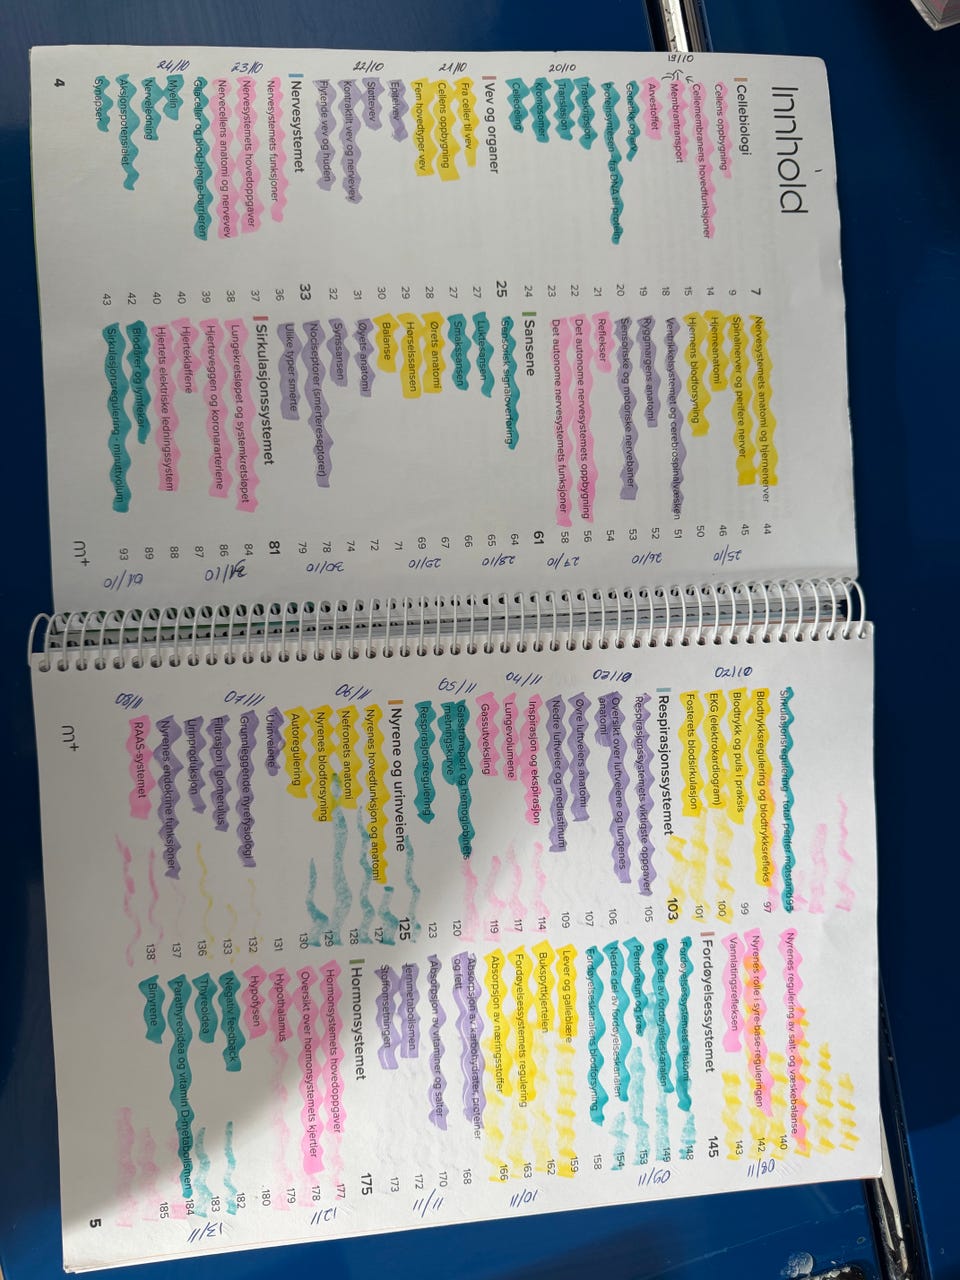 Innhold
Cellebiologi 7
Cellens oppbygning 9
Cellemembranens hovedfunksjoner 14
19/10
Membrantransport 15
Arvestoffet 18
Genetikk og arv 19
Proteinsyntesen - fra DNA til protein 20
Transkripsjon 21
20/10
Translasjon 22
Kromosomer 23
Celledeling 24
Vev og organer 25
Fra celler til vev 27
21/10
Cellens oppbygning 27
Fem hovedtyper vev 28
Epitelvev 29
22/10
Støttevev 30
Kontraktilt vev og nervevev 31
Flytende vev og huden 32
Nervesystemet 33
Nervesystemets funksjoner 36
23/10
Nervesystemets hovedoppgaver 37
Nervecellens anatomi og nervevev 38
Gliaceller og blod-hjerne-barrieren 39
24/10
Myelin 40
Nerveledning 40
Aksjonspotensialet 42
Synapsen 43
4
Nervesystemets anatomi og hjernenerver 44
Spinalnerver og perifere nerver 45
25/10
Hjerneanatomi 46
Hjernens blodforsyning 50
Ventrikkelsystemet og cerebrospinalvæsken 51
Ryggmargens anatomi 52
26/10
Sensoriske og motoriske nervebaner 53
Reflekser 54
Det autonome nervesystemets oppbygning 56
27/10
Det autonome nervesystemets funksjoner 58
Sansene 61
Sensorisk signaloverføring 64
28/10
Luktesansen 65
Smakssansen 66
Ørets anatomi 67
29/10
Hørselssansen 69
Balanse 71
Øyets anatomi 72
Synssansen 74
30/10
Nociseptorer (smertereseptorer) 78
Ulike typer smerte 79
Sirkulasjonssystemet 81
Lungekretsløpet og systemkretsløpet 84
31/10
Hjerteveggen og koronararteriene 86
Hjerteklaffene 87
Hjertets elektriske ledningssystem 88
Blodårer og lymfekar 89
01/10
Sirkulasjonsregulering - minuttvolum 93
m+
Sirkulasjonsregulering - total perifer motstand 95
Blodtrykksregulering og blodtrykksrefleks 97
Blodtrykk og puls i praksis 99
EKG (elektrokardiogram) 100
Fosterets blodsirkulasjon 101
Respirasjonssystemet 103
Respirasjonssystemets viktigste oppgaver 105
Oversikt over luftveiene og lungenes
anatomi 106
Øvre luftveiers anatomi 107
Nedre luftveier og mediastinum 109
Inspirasjon og ekspirasjon 114
Lungevolumene 117
Gassutveksling 119
Gasstransport og hemoglobinets
metningskurve 120
Respirasjonsregulering 123
Nyrene og urinveiene 125
Nyrenes hovedfunksjon og anatomi 127
Nefronets anatomi 128
Nyrenes blodforsyning 129
Autoregulering 130
Urinveiene 131
Grunnleggende nyrefysiologi 132
Filtrasjon i glomerulus 133
Urinproduksjon 136
Nyrenes endokrine funksjoner 137
RAAS-systemet 138
m+
Nyrenes regulering av salt- og væskebalanse 140
Nyrenes rolle i syre-base-reguleringen 142
08/11
Vannlatingsrefleksen 143
Fordøyelsessystemet 145
Fordøyelsessystemets funksjon 148
Øvre del av fordøyelseskanalen 149
09/11
Peritoneum og krøs 153
Nedre del av fordøyelseskanalen 154
Fordøyelseskanalens blodforsyning 158
Lever og galleblære 159
Bukspyttkjertelen 162
10/11
Fordøyelsessystemets regulering 163
Absorpsjon av næringsstoffer 166
Absorpsjon av karbohydrater, proteiner
og fett 168
Absorpsjon av vitaminer og salter 170
11/11
Jernmetabolismen 172
Stoffomsetningen 173
Hormonsystemet 175
Hormonsystemets hovedoppgaver 177
Oversikt over hormonsystemets kjertler 178
Hypothalamus 179
Hypofysen 180
Negativ feedback 182
Thyroidea 183
13/11
Parathyreoidea og vitamin D-metabolismen 184
Binyrene 185
5